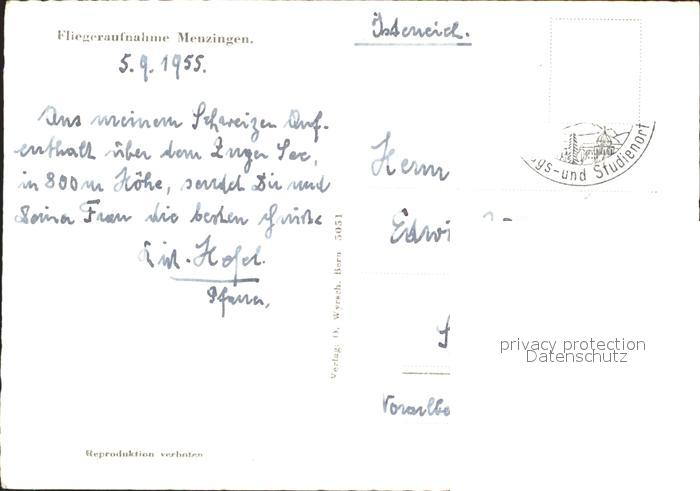 Fliegeraufnahme Menzingen.
5.9.1955.
Aus meinem Schweizer Auf-
enthalt über dem Zuger See,
in 800 m Höhe, sendet Dir und
Deiner Frau die besten Grüße
Hofel.
Pfarrer,
Reproduktion verboten
Verlag: O. Wyrsch, Bern 5051
Österreich.
gs- und Studienort
Herrn
Edwi
Vorarlbe
privacy protection
Datenschutz